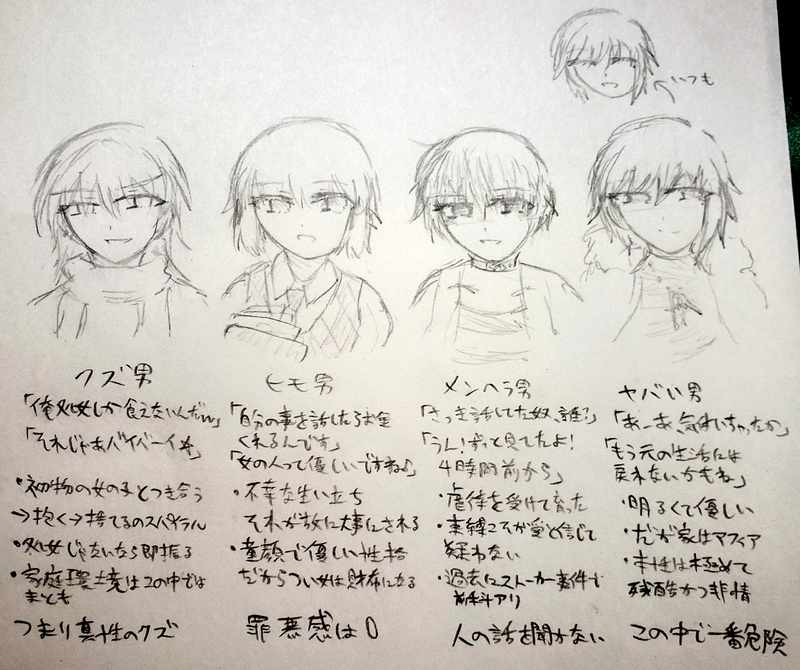 いつも
クズ男
「俺処女しか食えないんだww」
「それじゃあバイバーイ☆」
・初物の女の子とつき合う
→抱く→捨てるのスパイラル
・処女じゃないなら即振る
・家庭環境はこの中では
まとも
つまり真性のクズ
ヒモ男
「自分の事を話したらお金
くれるんです」
「女の人って優しいですね♪」
・不幸な生い立ち
それが故に大事にされる
・童顔で優しい性格
だからつい女は財布になる
罪悪感は0
メンヘラ男
「さっき話してた奴、誰?」
「うん!ずっと見てたよ!
4時間前から」
・虐待を受けて育った
・束縛こそが愛と信じて
疑わない
・過去にストーカー事件で
前科アリ
人の話を聞かない
ヤバい男
「あーあ、気付いちゃったか」
「もう元の生活には
戻れないかもね」
・明るくて優しい
・だが家はマフィア
・本性は極めて
残酷かつ非情
この中で一番危険